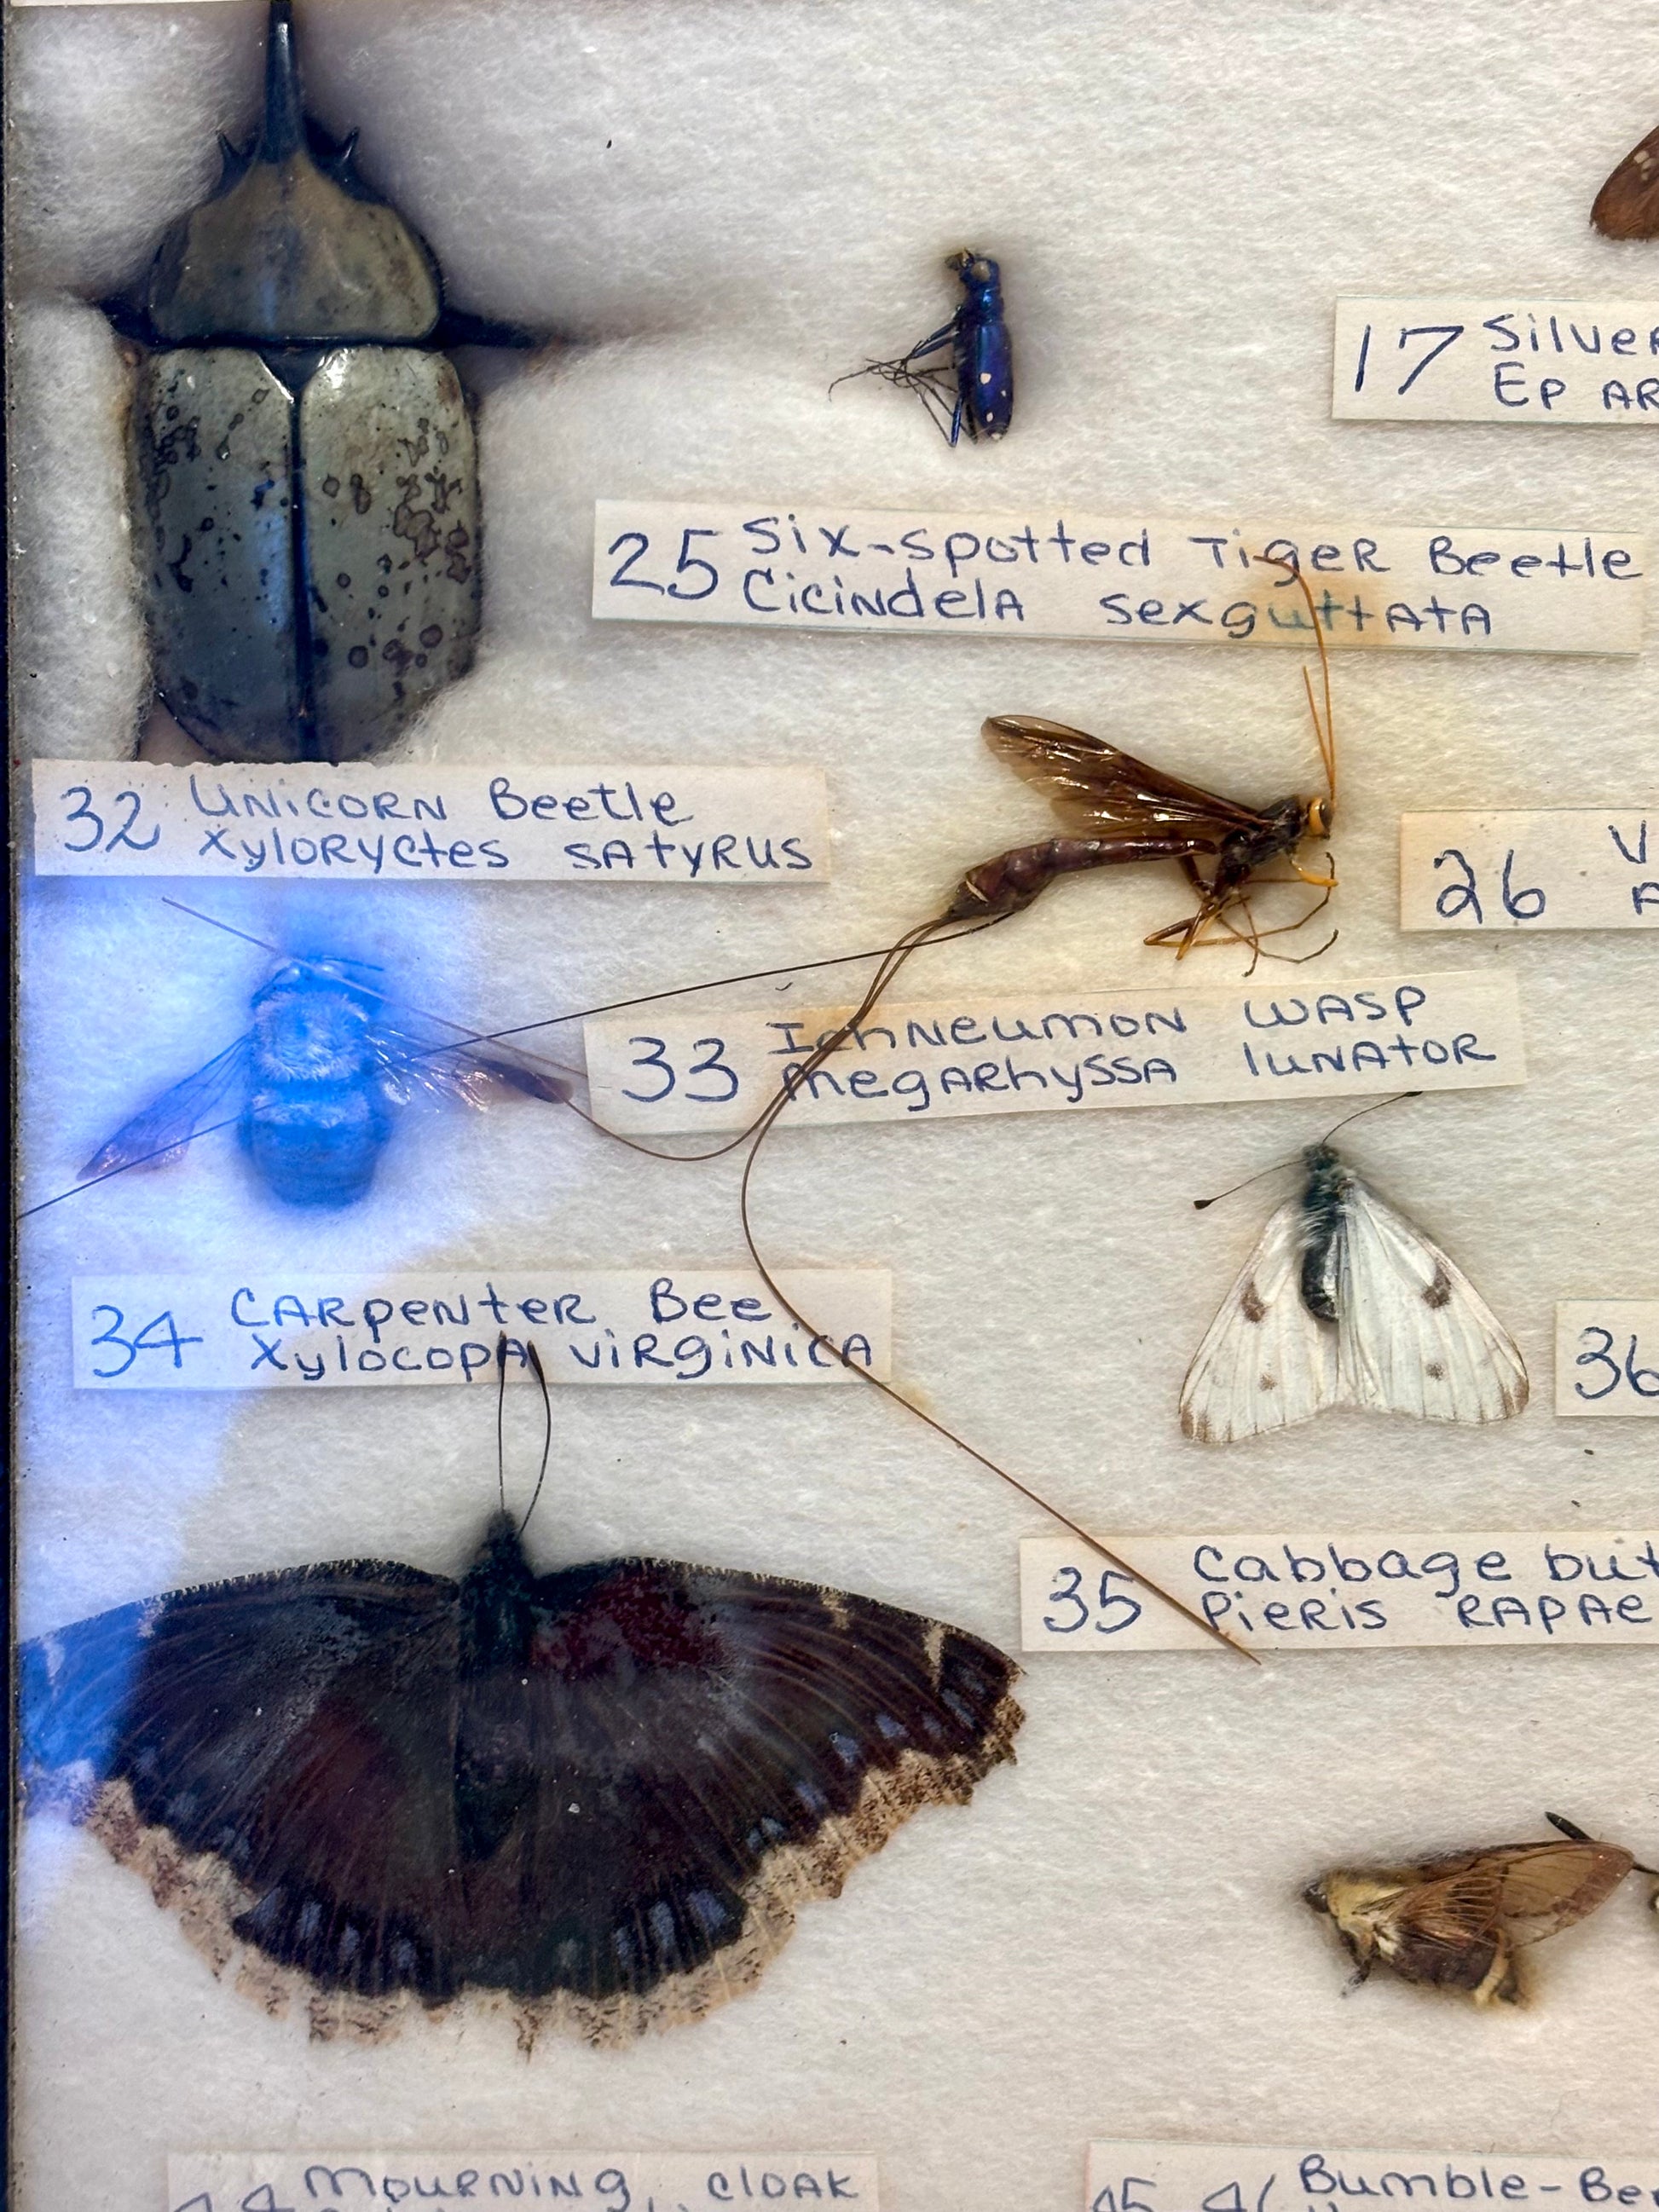 17 Silver
Ep AR
25 Six-spotted Tiger Beetle
Cicindela sexguttata
32 Unicorn Beetle
Xyloryctes satyrus
26 V
A
33 Ichneumon Wasp
Megarhyssa lunator
34 Carpenter Bee
Xylocopa virginica
36
35 Cabbage but
Pieris rapae
Mourning cloak
Bumble-Be